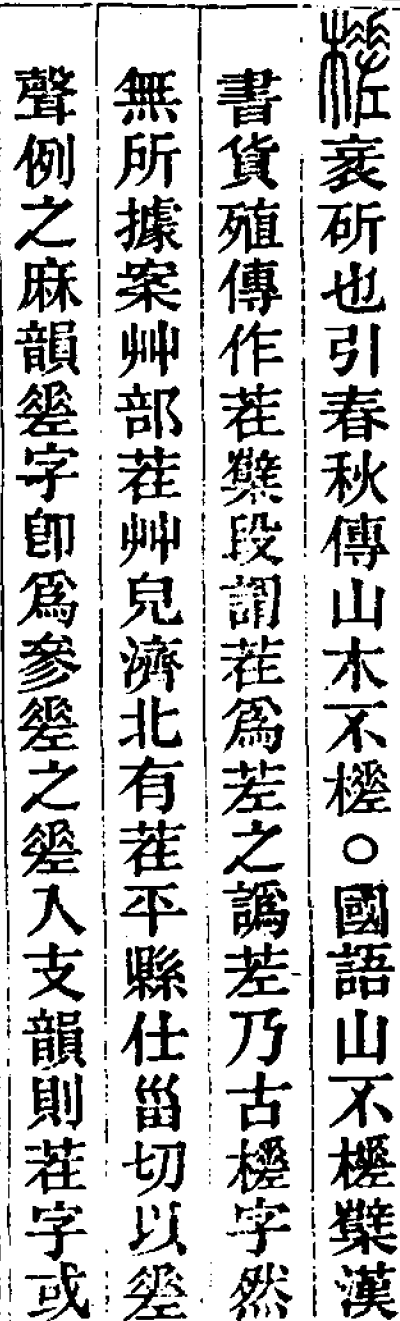 槎衺斫也引春秋傳山木不槎○國語山不槎櫱漢
書貨殖傳作茬櫱段謂茬爲差之譌差乃古槎字然
無所據案艸部茬艸皃濟北有茬平縣仕甾切以𢀩
聲例之麻韻𢀩字卽爲參𢀩之𢀩入支韻則茬字或